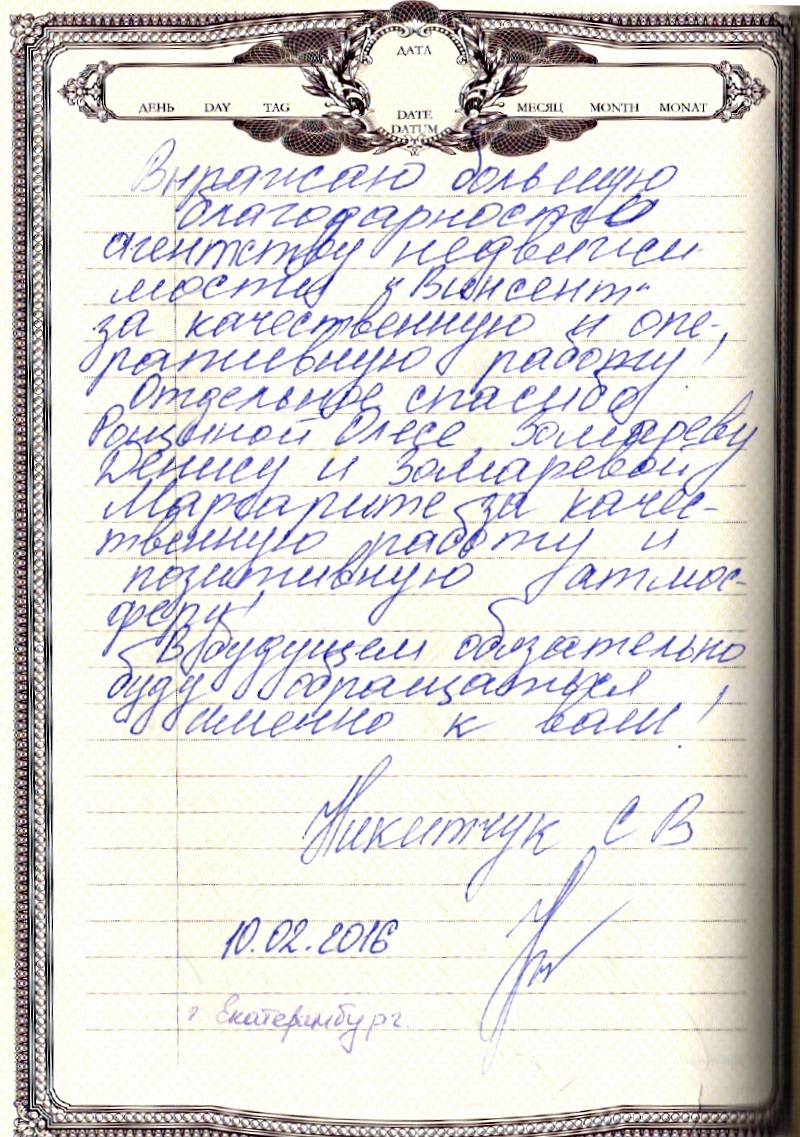 ДАТА
ДЕНЬ DAY TAG
DATE
DATUM
МЕСЯЦ MONTH MONAT
Выражаю большую
благодарность
агентству недвижи-
мости "Винсент"
за качественную и опе-
ративную работу!
Отдельное спасибо
Рощиной Олесе, Зомареву
Денису и Зомаревой
Маргарите за качес-
твенную работу и
позитивную атмос-
феру!
В будущем обязательно
буду обращаться
именно к вам!
Никитчук С В
10.02.2016
г Екатеринбург.